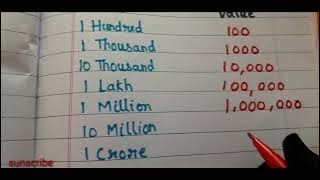 Value
1 Hundred 100
1 Thousand 1000
10 Thousand 10,000
1 Lakh 100,000
1 Million 1,000,000
10 Million
1 Crore
sunscribe